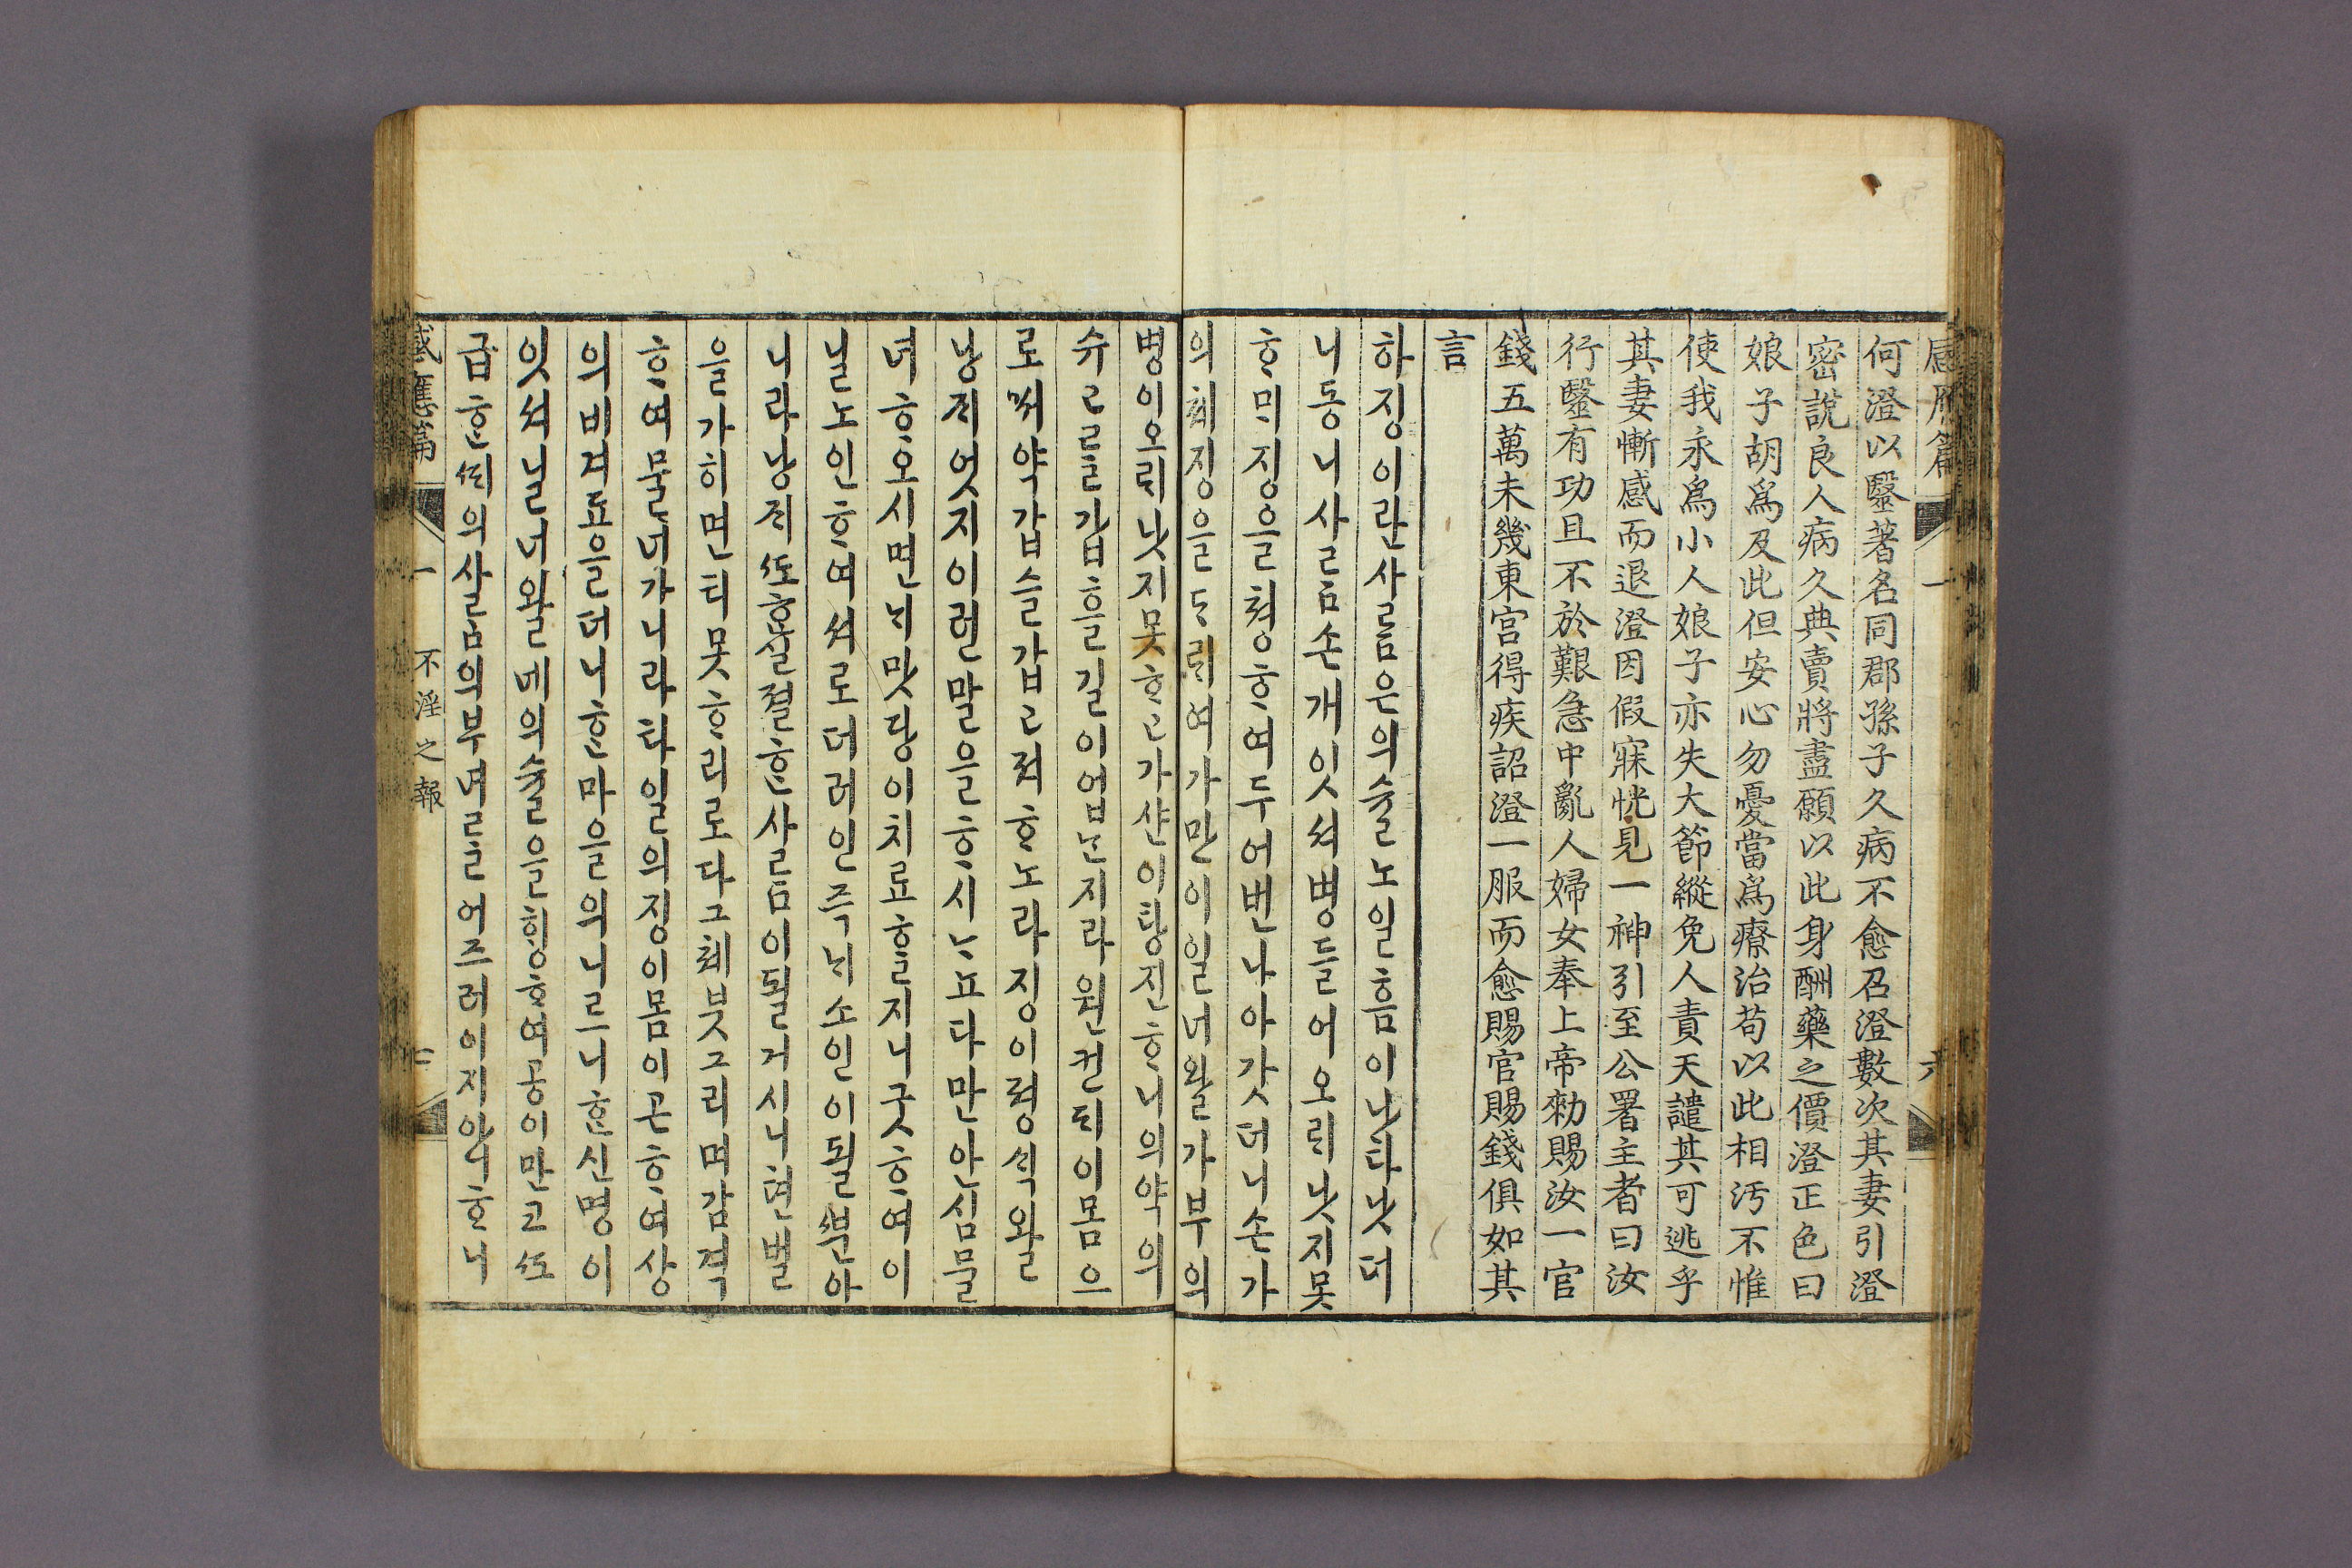 感應篇 一 六
何澄以毉著名同郡孫子久病不愈召澄數次其妻引澄
密說良人病久典賣將盡願以此身酬藥之價澄正色曰
娘子胡爲及此但安心勿憂當爲療治苟以此相汚不惟
使我永爲小人娘子亦失大節縱免人責天譴其可逃乎
其妻慚感而退澄因假寐恍見一神引至公署主者曰汝
行毉有功且不於艱急中亂人婦女奉上帝勑賜汝一官
錢五萬未幾東宮得疾詔澄一服而愈賜官賜錢俱如其
言
하징이란사ᄅᆞᆷ은의슐노일흠이나타낫더
니동니사ᄅᆞᆷ손개잇셔병들어오ᄅᆡ낫지못
ᄒᆞᄆᆡ징을쳥ᄒᆞ여두어번나아갓더니손가
의쳬징을ᄃᆞ려여가만이일너왈가부의
병이오ᄅᆡ낫지못ᄒᆞᄀᆞ가샨이탕진ᄒᆞ니의약의
슈ᄅᆞᆯ갑흘길이업ᄂᆞᆫ지라원컨ᄃᆡ이몸으
로ᄡᅥ약갑슬갑고져ᄒᆞ노라징이졍ᄉᆡᆨ왈
낭ᄌᆡ엇지이런말을ᄒᆞ시ᄂᆞ뇨다만안심믈
녀ᄒᆞ오시면ᄂᆡ맛당이치료ᄒᆞᆯ지니구ᄎᆞᄒᆞ여이
닐노인ᄒᆞ여셔로더러인즉ᄂᆡ소인이될ᄲᅮᆫ아
니라낭ᄌᆡᄯᅩᄒᆞᆫ실졀ᄒᆞᆫ사ᄅᆞᆷ이될거시니텬벌
을가히면티못ᄒᆞ리로다그쳬붓그리며감격
ᄒᆞ여물너가니라타일의징이몸이곤ᄒᆞ여상
의비겨죠을더니ᄒᆞᆫ마을의니르니ᄒᆞᆫ신명이
잇셔닐너왈네의슐을ᄒᆡᆼᄒᆞ여공이만코ᄯᅩ
급ᄒᆞᆫᄯᆡ의사ᄅᆞᆷ의부녀ᄅᆞᆯ어즈러이지아니ᄒᆞ니
感應篇 一 不淫之報 二